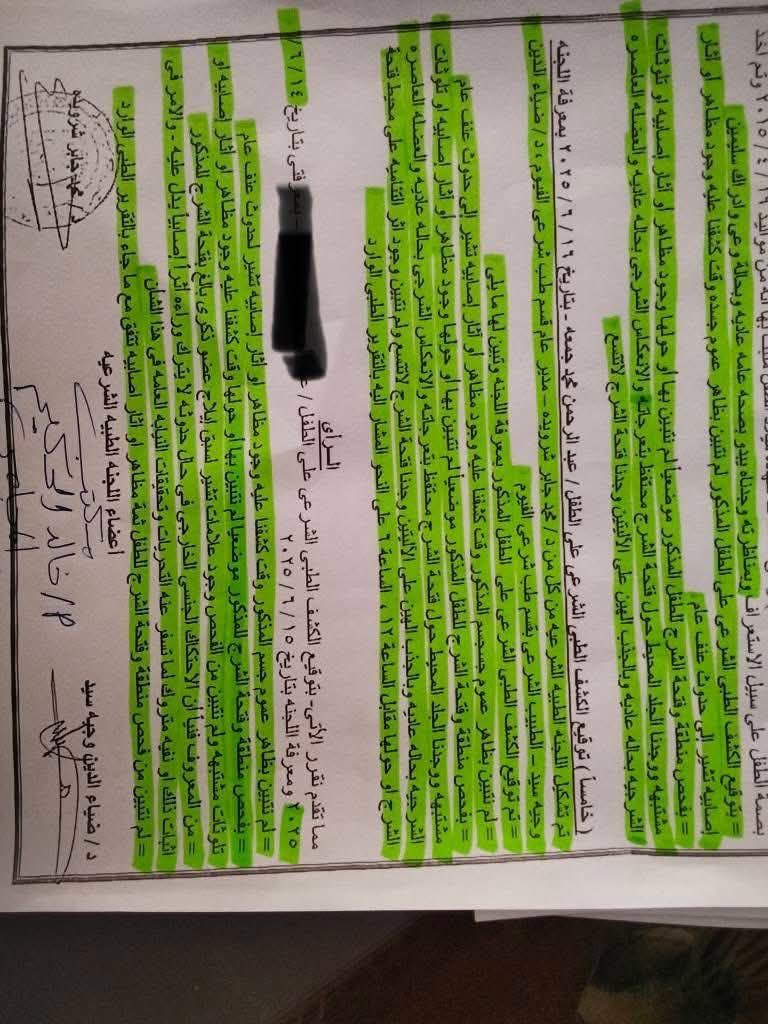 بصمة الطفل على سبيل الاستعراف وبمناظرته وجدناه يبدو بصحه عامه عاديه وبحالة وعى وادراك سليمين
= بتوقيع الكشف الطبى الشرعى على الطفل المذكور لم نتبين بظاهر عموم جسده وقت كشفنا عليه وجود مظاهر او أثار
إصابيه تشير إلى حدوث عنف عام
= بفحص منطقة وفتحة الشرج للطفل المذكور موضعياً لم نتبين بها او حولها وجود مظاهر او أثار إصابيه او تلوثات
مشتبهه ووجدنا الجلد المحيط حول فتحة الشرج محتفظ بتعرجاته والانعكاس الشرجى بحاله عاديه والعضله العاصره
الشرجيه بحاله عاديه وبالجذب الهين على الأليتين وجدنا فتحة الشرج لاتتسع
( خامساً ) توقيع الكشف الطبى الشرعى على الطفل / عبد الرحمن محمد جمعه - بتاريخ ١٦ / ٦ / ٢٠٢٥ بمعرفة اللجنه
تم تشكيل اللجنه الطبيه الشرعيه من كل من د / محمد جابر شرويده - مدير عام قسم طب شرعى الفيوم ، د / ضياء الدين
وجيه سيد - الطبيب الشرعى بقسم طب شرعى الفيوم
= تم توقيع الكشف الطبى الشرعى على الطفل المذكور بمعرفة اللجنه وتبين لها مايلى
= لم نتبين بظاهر عموم جسم المذكور وقت كشفنا عليه وجود مظاهر او أثار إصابيه تشير إلى حدوث عنف عام
= بفحص منطقة وفتحة الشرج الطفل المذكور موضعياً لم نتبين بها او حولها وجود مظاهر او أثار إصابيه او تلوثات
مشتبهه ووجدنا الجلد المحيط حول فتحة الشرج محتفظ بتعرجاته والانعكاس الشرجى بحاله عاديه والعضله العاصره
الشرجيه بحاله عاديه وبالجذب الهين على الأليتين وجدنا فتحة الشرج لاتتسع ولم نتبين وجود اثر التئاميه على محيط فتحة
الشرج او حولها مقابل الساعة ١٢ ، الساعة ٦ على النحو المشار اليه بالتقرير الطبى الوارد
الـرأى
مما تقدم نقرر الأتى- بتوقيع الكشف الطبى الشرعى على الطفل / بمعرفتى بتاريخ ١٤ / ٦ /
٢٠٢٥ ومعرفة اللجنه بتاريخ ١٥ / ٦ / ٢٠٢٥
= لم نتبين بظاهر عموم جسم المذكور وقت كشفنا عليه وجود مظاهر او أثار إصابيه تشير لحدوث عنف عام
= بفحص منطقة وفتحة الشرج للمذكور موضعياً لم نتبين بها او حولها وقت كشفنا عليه وجود مظاهر او أثار إصابيه او
تلوثات مشتبهه ولم نتبين من الفحص وجود علامات تشير لسبق إيلاج عضو ذكرى بالغ بفتحة الشرج المذكور
= من المعروف فنياً أن الاحتكاك الجنسى الخارجى فى حال حدوثه لا يترك وراءه أثراً إصابياً يدل عليه - والأمر فى
اثبات ذلك او نفيه متروك لما تسفر عنه التحريات وتحقيقات النيابه العامه فى هذا الشأن
= لم نتبين من فحص منطقة وفتحة الشرج للطفل ثمة مظاهر او أثار إصابيه تتفق مع ما جاء بالتقرير الطبى الوارد
أعضاء اللجنه الطبيه الشرعيه
د / ضياء الدين وجيه سيد
د / محمد جابر شرويده